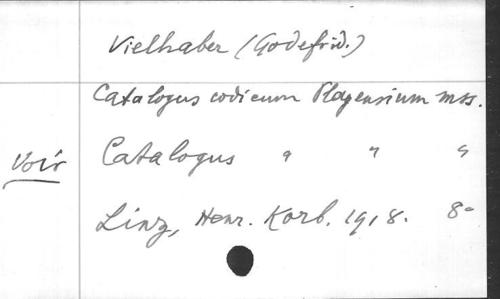 Vielhaber (Godefrid.)
Catalogus codicum Plagensium mss.
Voir Catalogus " " "
Linz, Henr. Korb. 1918. 8°